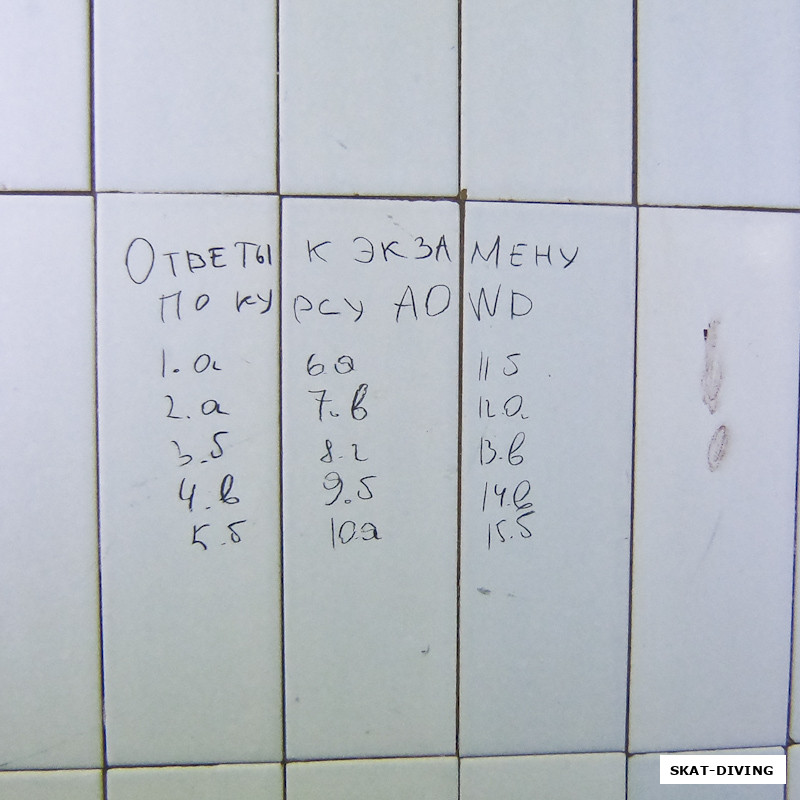 ОТВЕТЫ К ЭКЗАМЕНУ
ПО КУРСУ AOWD
1. а 6 а 11 б
2. а 7. в 12. а
3. б 8. г 13. в
4. в 9. б 14. в
5. б 10 а 15. б
SKAT-DIVING